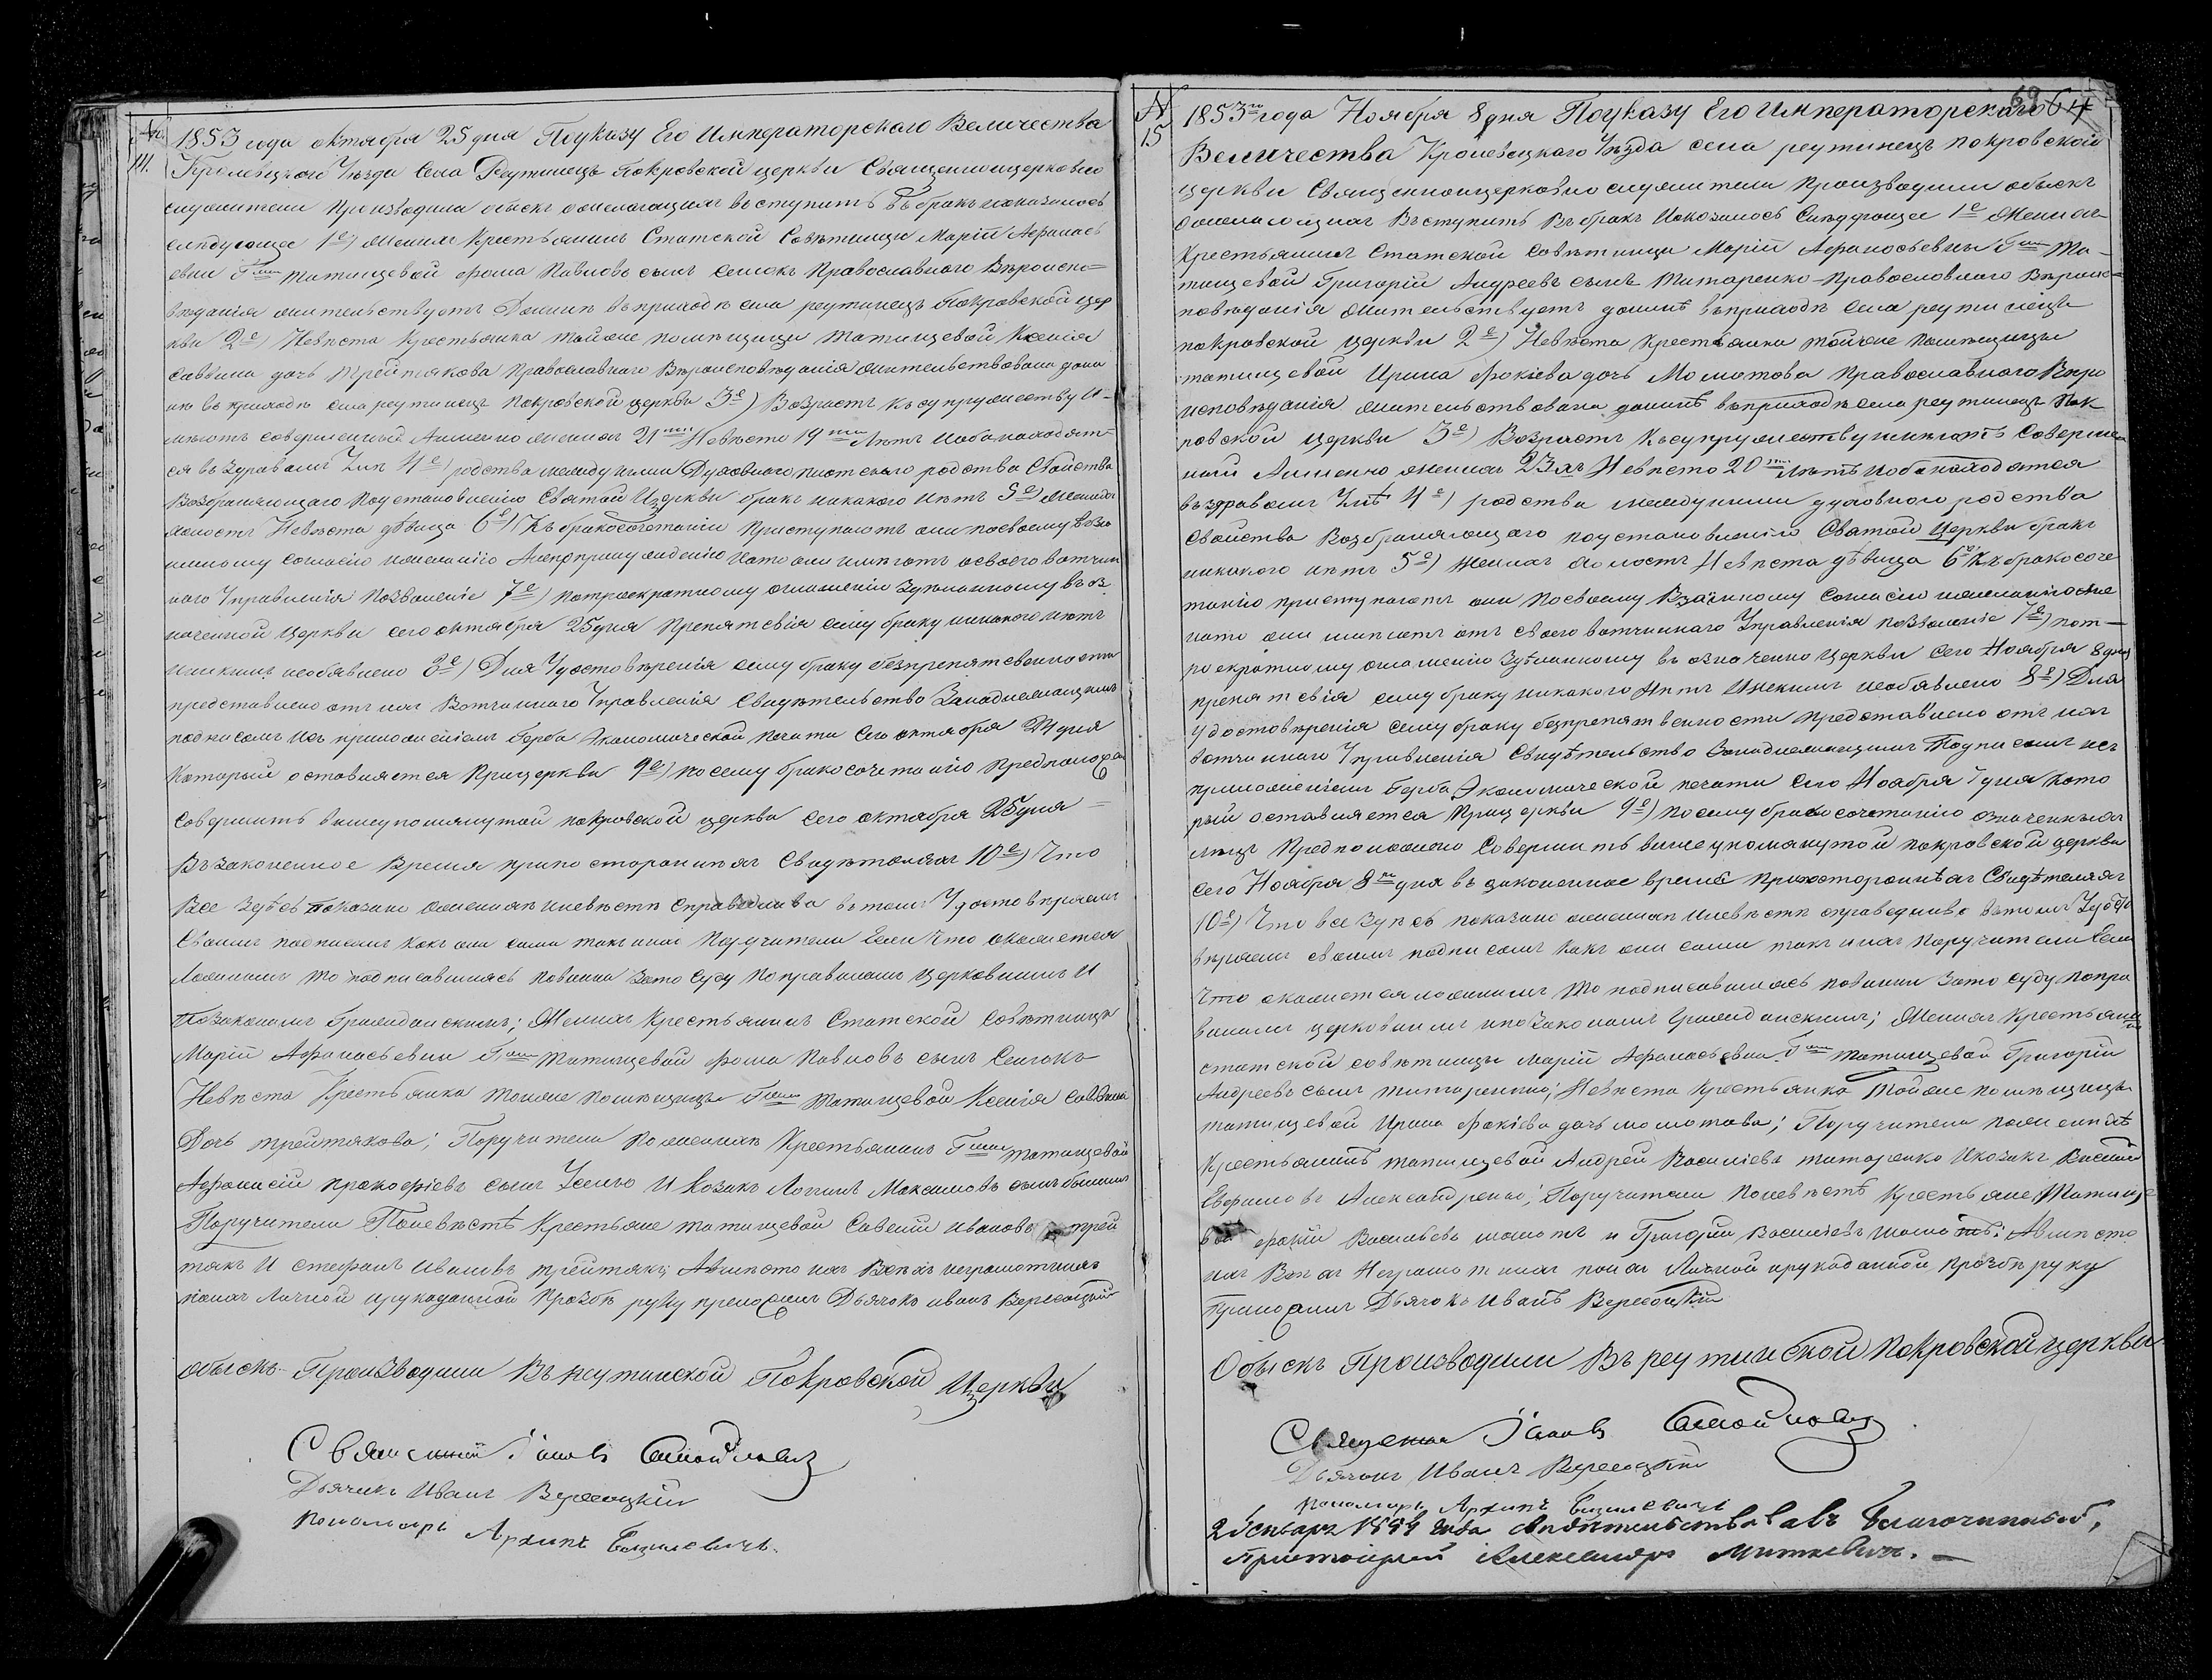 № 14. 1853 года октября 25 дня Поуказу Его Императорскаго Величества
Кролевецкого Уезда Села Реутинець Покровской церкви Священноицерковно
служители Производили обыск ожелающим вступить въ брак ипоказалось
следующее 1е) Жених Крестьянин Статской Советницы Марій Афанась
евни Гжи татищевой фома Павловъ сынъ Православного Вероиспо=
ведания жительствуетъ Доныне въприходе села реутинець Покровской цер
кви 2е) Невеста Крестьянка тойже помещицы татищевой Ксенія
саввина дочь трейтякова православнаго Вероисповеданія жительствовала доны
не въ приходе села реутинець покровской церкви 3е) Возрастъ къ супружеству и-
меютъ совершенный Аименно жених 21 Невеста 19 Летъ иоба находят-
ся въздравомъ Уме 4е) родства между ними Духовного плотского родства Свойства
Возбраняющаго поустановленію Святой Церкви бракъ никакого нетъ 5е) Жених
холостъ Невеста девица 6е) Къ бракосочетанію Приступаютъ они посвоему взаи
мному согласію ижеланію Анепопринуждению нато они имеютъ освоего вотчин
ного Управленія позволеніе 7е) потроекратному оглашенію Зделанному въоз
наченной церкви сего октября 25 дня препятсвія сему браку никакого нетъ
иникимъ необявлено 8е) Для Удостоверенія сему браку безпрепятсвенности
представлено отъ них Вотчинного Управленія Свидетельство Занадлежащимъ
подписомъ исъ приложеніемъ Герба Экономической печати Сего октября 24 дня
Который оставляется Прицеркви 9е) посему бракосочетанію Предположе
Совершитъ вышеупомянутой покровской церкви сего октября 25 дня
Въ законенное Время при посторонных Свидетелях 10е) Что
Все Здесъ показано ожених иневесте справедливо втом Удостоверяемъ
Своимъ подписомъ какъ они сами такъ иних Поручители Если что окажется
Ложнымъ то подписавшиясь повинны Зато Суду поправиламъ церковнимъ и
Позаконамъ Гражданскимъ; Жених Крестьянинъ Статской Советницы
Марій Афанасьевни Гжи татищевой фома Павловъ сынъ
Невеста Крестьянка тоиже помещицы Гжи татищевой Ксенія саввина
Дочь трейтякова; Поручители пожениху Крестьянинъ Гжи татищевой
Афанасій прокофіевъ сынъ и козакъ Логгинъ Максимовъ сынъ
Поручители Поневесте Крестьяне татищевой Савелій ивановъ трей
такъ и стефанъ ивановъ трейтякъ; Авместо ихъ Всехъ неграмотних
поних личной ирукоданной прозбе руку преложилъ Дьячокъ иванъ Вересоцкій
обыскъ Производили Въ реутинской Покровской Церкви
Священникъ Іаковъ Самойловичъ
Дьячокъ Иванъ Вересоцкій
Пономаръ Архипъ Базилевичъ.
69 64
№ 15 1853го года Ноября 8 дня Поуказу Его Императорскаго
Величества Кролевецкаго Уезда села реутинець покровской
церкви Священноицерковнослужители Производили обыскъ
ожелающихъ Въступить Въбракъ Ипоказалось Следующее 1е Жених
Крестьянинъ Статской Советницы Марій Афанасьевны Гжи Та-
тищевой Григорій Андреевъ сынъ Титаренко Православного Вероис-
поведанія жительствуетъ доныне въприходе села реутинець
покровской церкви 2е) Невеста Крестьянка тойже помещицы
татищевой Ирина Фокіева дочь Мо­лотова Православнаго Веро
исповеданія жительствовала доныне въприходе села реутинець Пок-
ровской церкви 3е) Возрастъ Късупружеству имеютъ Соверше
нный Аименно жених 23хъ Невеста 20 летъ иоба находятся
въздравомъ Уме 4е) родства между ними духовного родства
Свойства Возбраняющаго поустановленію Святой Церкви бракъ
никакого нетъ 5е) Жених холостъ Невеста девица 6е Къ бракосоче
танію приступаютъ они посвоему Взаимному Согласію ижеланію
нато они имеютъ отъ своего вотчиннаго Управленія позволеніе 7е) пот-
роекратному оглашенію Зделанному въ означенно церкви Сего Ноября 8 дня
препятсвія сему браку никакого Нетъ Иникимъ необявлено 8е) Для
Удостоверенія сему браку безпрепятвенности представлено отъ них
вотчинного Управленія Свидетельство Занадлежащимъ Подписомъ исъ
приложеніемъ Герба Экономической печати Сего Ноября 7 дня Кото
рый оставляется Прицеркви 9е) посему бракосочетанію означенныхъ
лицъ Предположено Совершитъ вышеупомянутой покровской церкви
Сего Ноября 8го дня въ законенное время припостороннехъ Свидетелях
10е) Что все Здесъ показано ожених иневесте справедливо втомъ Удосто
веряемъ своимъ подписомъ какъ они сами такъ иних поручители Если
Что окажется ложнимъ то подписавшиясъ повинни Зато суду попра
виламъ церковнимъ ипоЗаконамъ Гражданскимъ; Жених Крестьянинъ
статской советницы марій Афанасьевни Гжи татищевой Григорій
Андреевъ сынъ титаренко; Невеста крестьянка Тойже помещицы
татищевой Ирина Фокіева дочь молотова; Поручители пожених
Крестьянинъ татищевой Андрей Василіевъ титаренко Икозакъ Василій
Евфимовъ Александренко; Поручители поневесте крестьяне Татище
вой фокій Васильевъ молотъ и Григорій Василіевъ молотъ; Авместо
них Всехъ Неграмотних поних Личной ирукоданной прозбе руку
Приложилъ Дьячокъ Иванъ Вересоцкій
Обыскъ Производили Въ реутинской покровской церкви
Священникъ Іаковъ Самойловичъ
Дьячокъ Иванъ Вересоцкій
Пономаръ Архипъ Базилевичъ
2 Генваря 1854 года свидетельствовалъ Благочинный,
Протоіерей Александръ Миткевичъ.